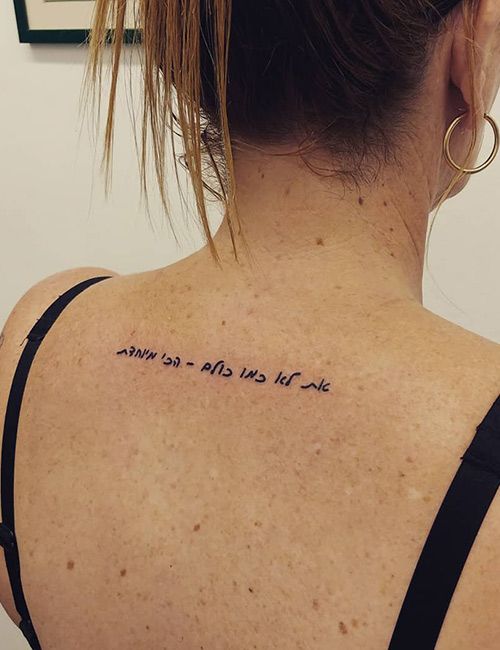 את לא כמו כולם - הכי מיוחדת